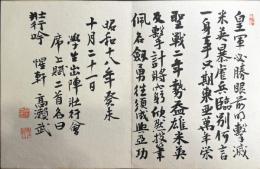 皇軍必勝眼前明撃滅
米英暴虐兵臨別何言
一身事又期東亜万年榮
聖戰二年勢益雄米英
反撃計将窮欣然投筆
佩名剣勇往須成興亜功
昭和十八年癸未
十月二十一日
學生出陣壮行會
席上賦二首名曰
壮行吟 惺軒 高瀬武